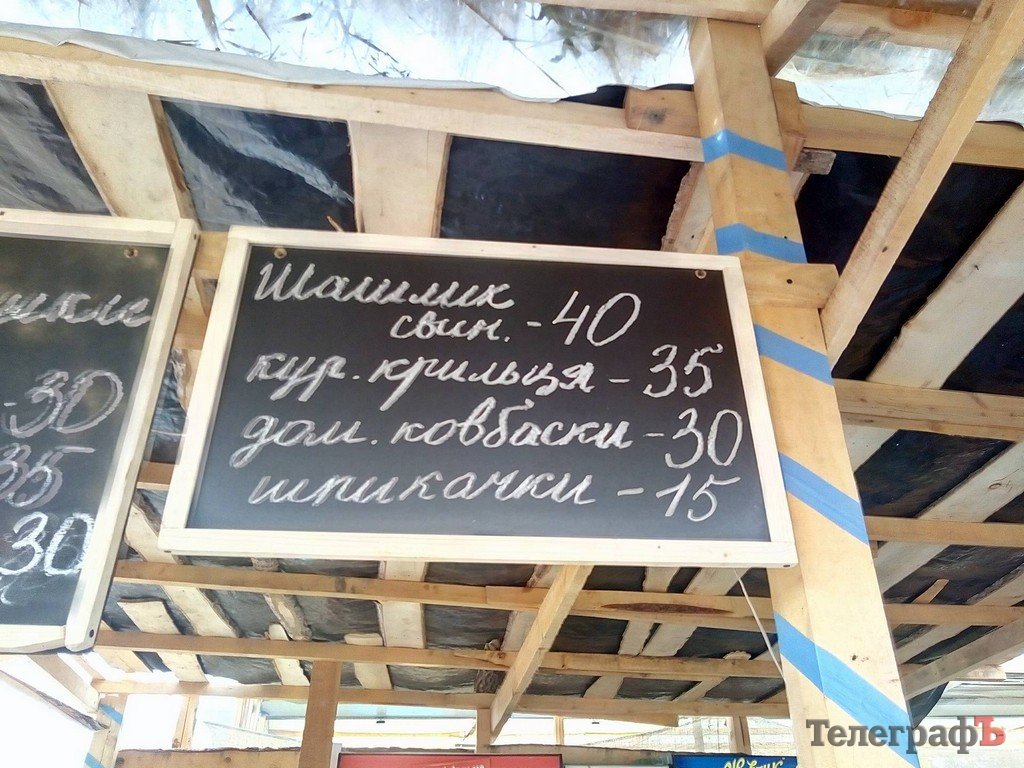 Шашлик
свин. - 40
кур. крильця - 35
дом. ковбаски - 30
шпикачки - 15
- 30
35
30
ТелеграфЪ